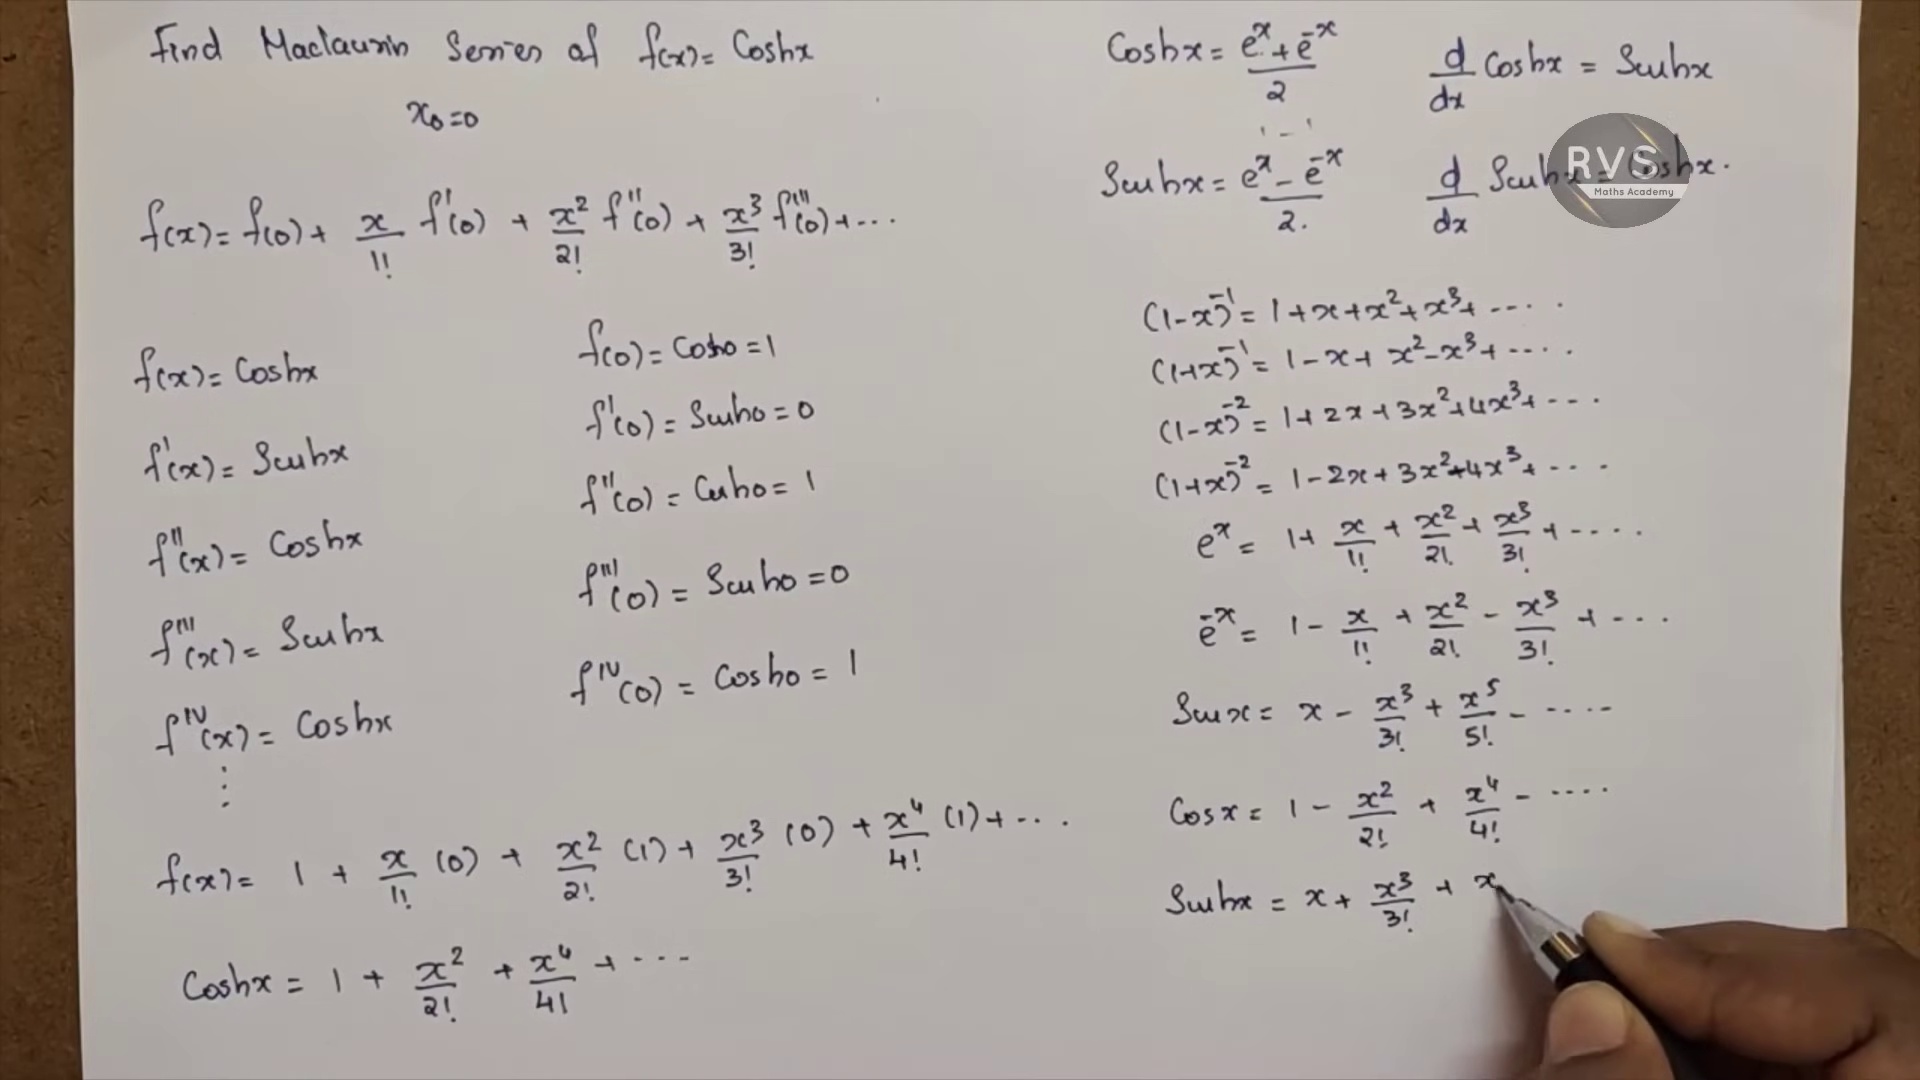 Find Maclaurin Series of f(x) = Coshx
x₀=0
f(x) = f(0) + x/1! f'(0) + x²/2! f''(0) + x³/3! f'''(0) + ...
f(x) = Coshx
f(0) = Cosh0 = 1
f'(x) = Sinhx
f'(0) = Sinh0 = 0
f''(x) = Coshx
f''(0) = Cosh0 = 1
f'''(x) = Sinhx
f'''(0) = Sinh0 = 0
f^IV(x) = Coshx
f^IV(0) = Cosh0 = 1
⋮
f(x) = 1 + x/1! (0) + x²/2! (1) + x³/3! (0) + x⁴/4! (1) + ...
Coshx = 1 + x²/2! + x⁴/4! + ...
Coshx = (eˣ + e⁻ˣ)/2
d/dx Coshx = Sinhx
Sinhx = (eˣ - e⁻ˣ)/2.
d/dx Sinhx = Coshx.
RVS
Maths Academy
(1-x)⁻¹ = 1 + x + x² + x³ + ....
(1+x)⁻¹ = 1 - x + x² - x³ + ....
(1-x)⁻² = 1 + 2x + 3x² + 4x³ + ...
(1+x)⁻² = 1 - 2x + 3x² - 4x³ + ...
eˣ = 1 + x/1! + x²/2! + x³/3! + ....
e⁻ˣ = 1 - x/1! + x²/2! - x³/3! + ...
Sinx = x - x³/3! + x⁵/5! - ....
Cosx = 1 - x²/2! + x⁴/4! - ....
Sinhx = x + x³/3! + x